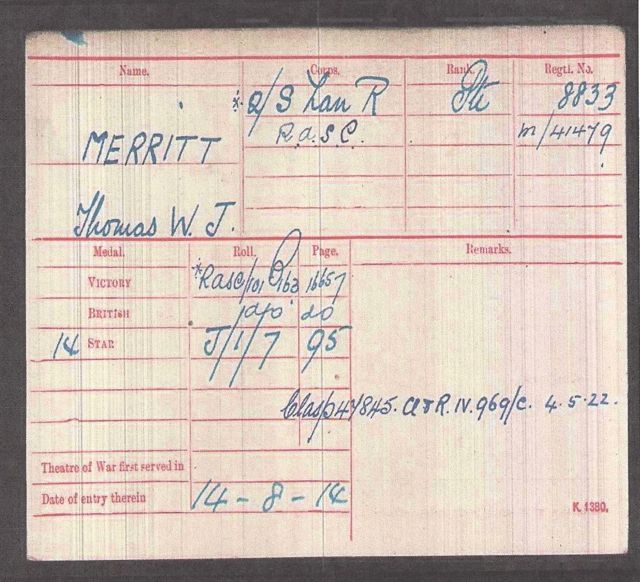 Name. Corps. Rank. Regtl. No.
* 2/S Lan R Pte 8833
R.A.S.C. M/41479
MERRITT
Thomas W. J.
Medal. Roll. Page. Remarks.
VICTORY *RASC/101 B163 16657
BRITISH do do
14 STAR J/1/7 95
Clasp 4Y845. A&R. IV. 969/C. 4.5.22.
Theatre of War first served in
Date of entry therein 14-8-14
K. 1380.